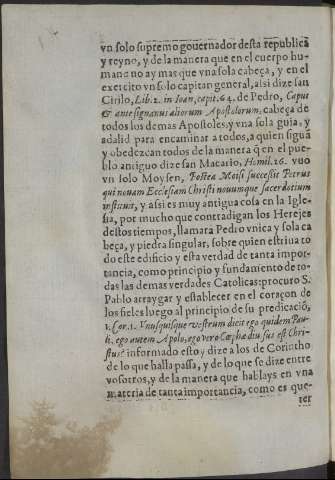 vn solo supremo gouernador desta republica
y reyno, y de la manera que en el cuerpo hu-
mano no ay mas que vna sola cabeça, y en el
exercito vn solo capitan general, asi dize san
Cirilo, Lib. 2. in Ioan, capit. 64. de Pedro, Caput
& antesignanus aliorum Apostolorum, cabeça de
todos los demas Apostoles, y vna sola guia, y
adalid para encaminar a todos, a quien siguã
y obedezcan todos de la manera q̃ en el pue-
blo antiguo dize san Macario, Homil. 26. vuo
vn solo Moysen, Postea Moisi successit Petrus
qui nouam Ecclesiam Christi nouumque sacerdotium
instituit, y assi es muy antigua cosa en la Igle-
sia, por mucho que contradigan los Herejes
destos tiempos, llamar a Pedro vnica y sola ca
beça, y piedra singular, sobre quien estriua to
do este edificio y esta verdad de tanta impor-
tancia, como principio y fundamento de to-
das las demas verdades Catolicas: procuro S.
Pablo arraygar y establecer en el coraçon de
los fieles luego al principio de su predicaciõ,
1. Cor. 1. Vnusquisque vestrum dicit ego quidem Pau-
li, ego autem Apolo, ego vero Cæphæ diuisus est Chri-
stus? informado esto y dize a los de Corintho
de lo que halla passa, y de lo que se dize entre
vosotros, y de la manera que hablays en vna
materia de tanta importancia, como es que-
rer